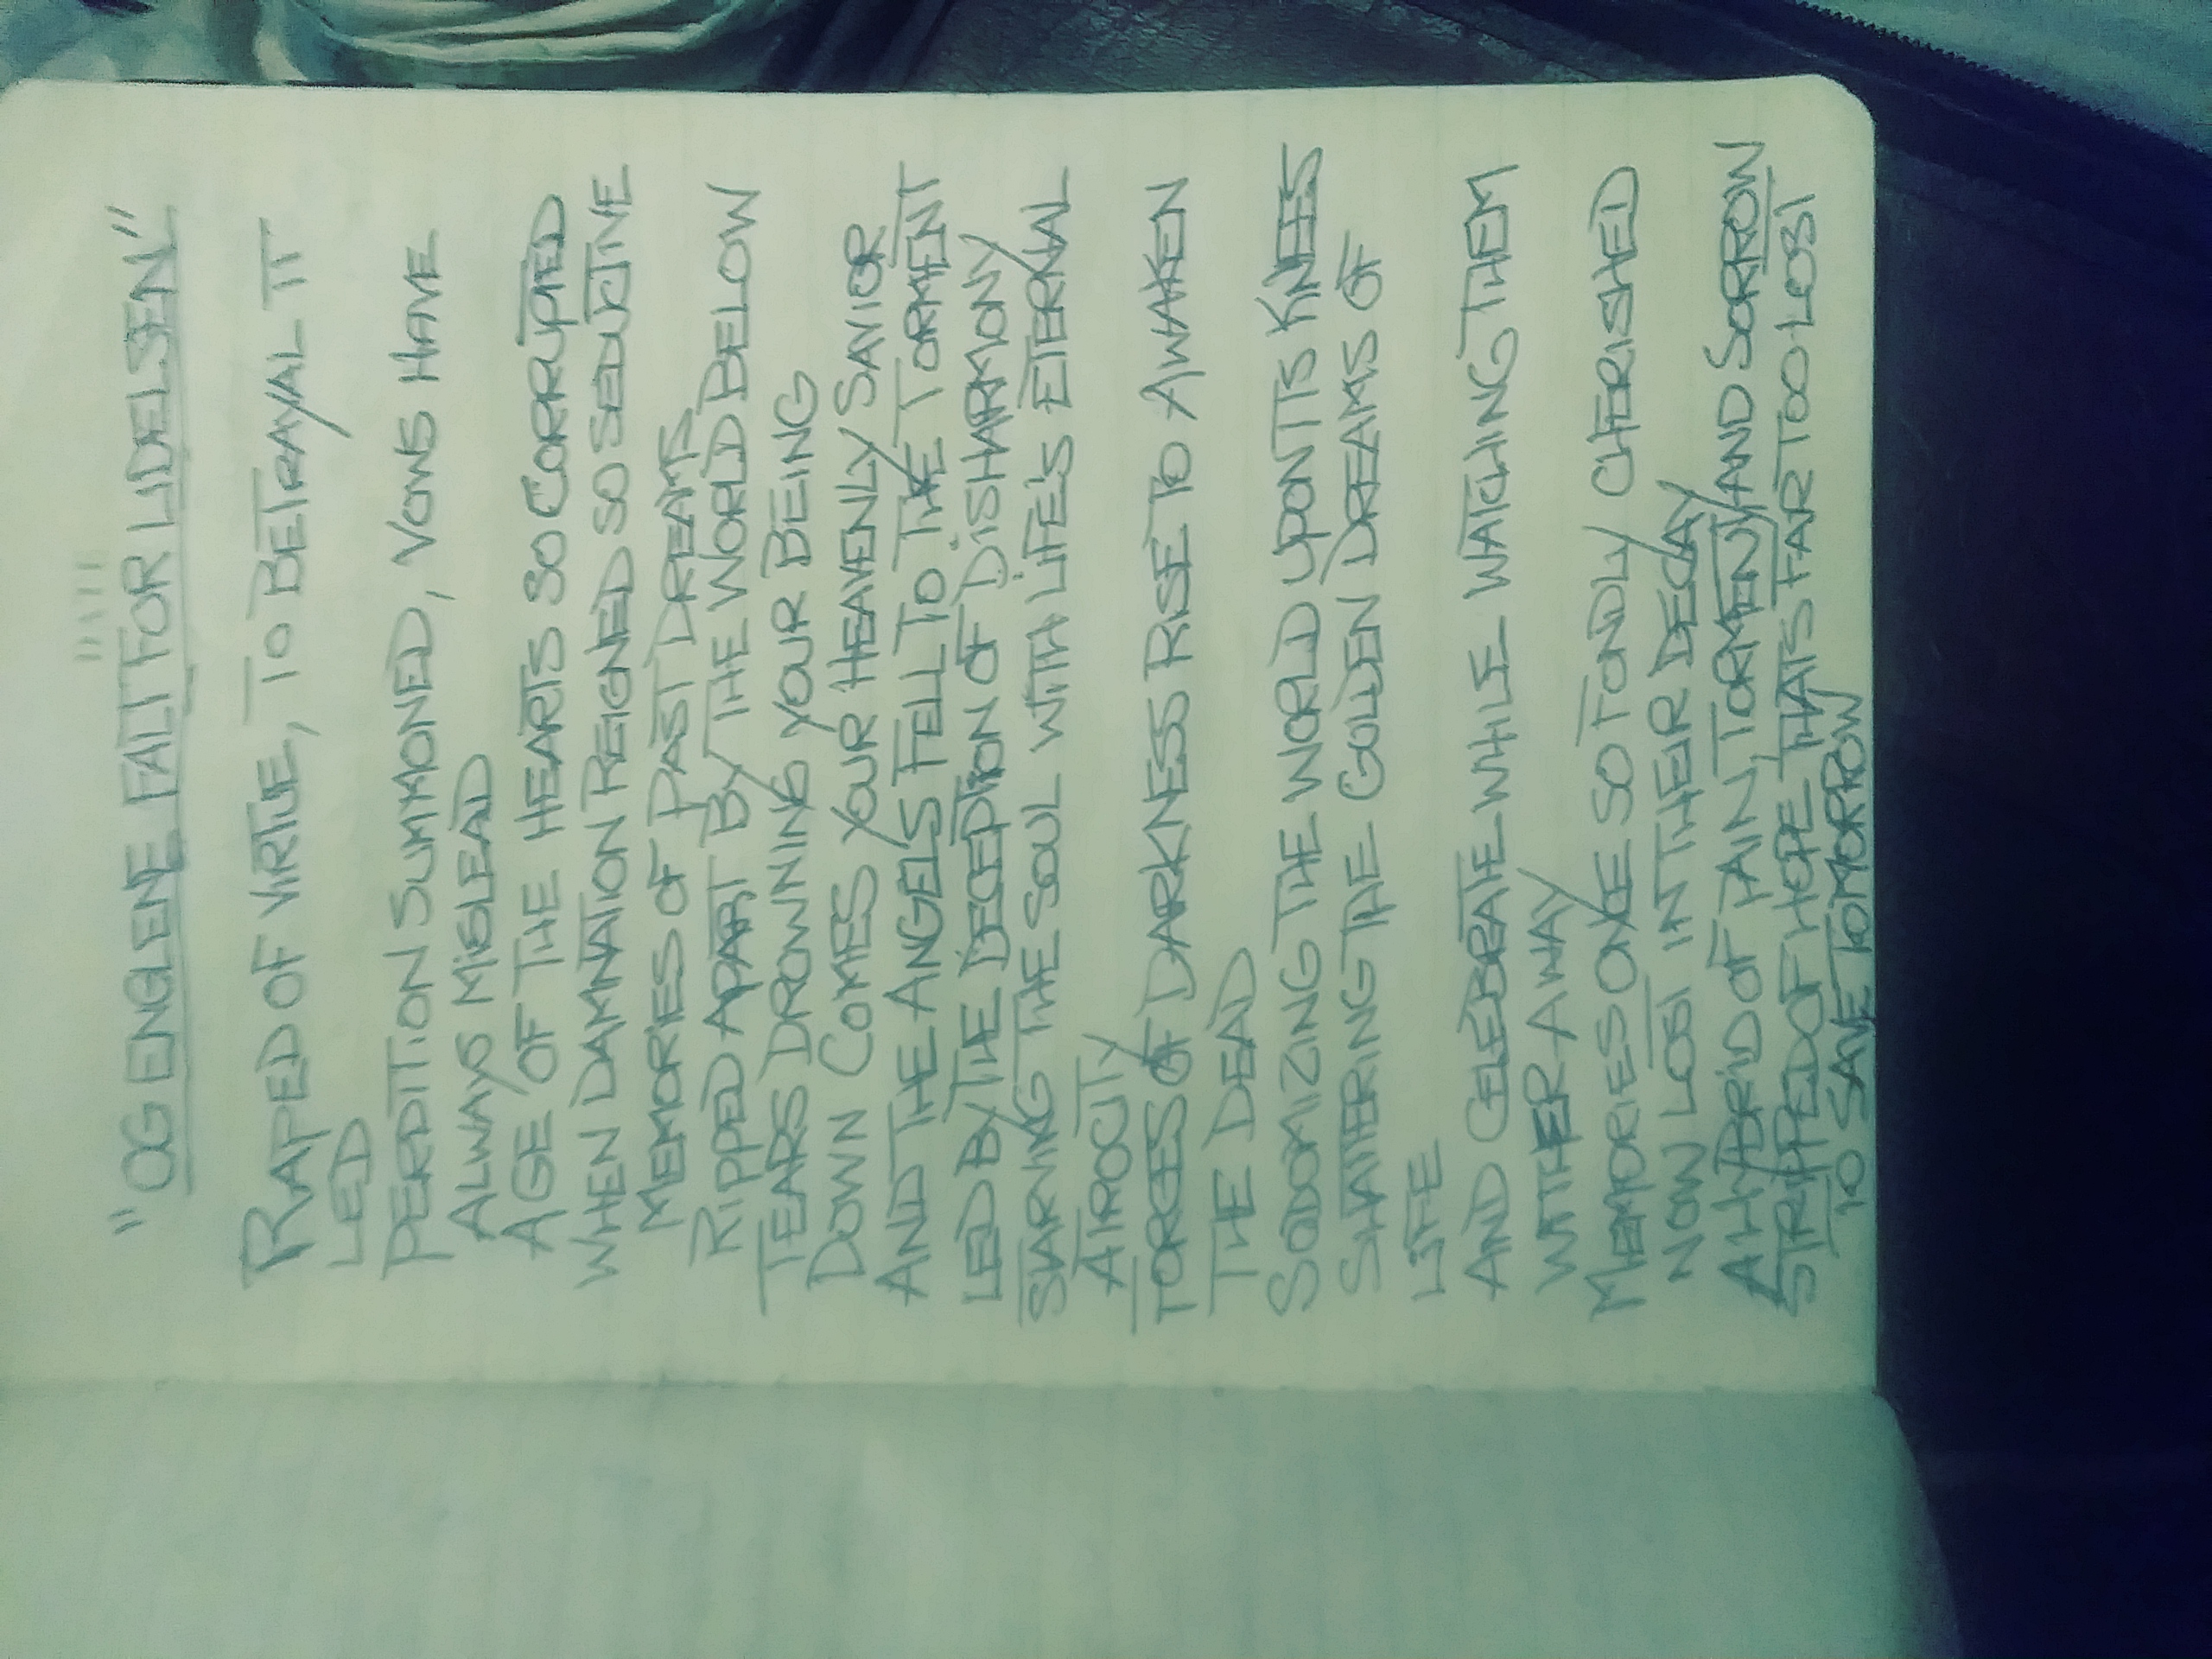 DATE
"OG ENGLENE FALT FOR LIDELSEN"
RAPED OF VIRTUE, TO BETRAYAL IT
LED
PERDITION SUMMONED, VOWS HAVE
ALWAYS MISLEAD
AGE OF THE HEARTS SO CORRUPTED
WHEN DAMNATION REIGNED SO SEDUCTIVE
MEMORIES OF PAST DREAMS
RIPPED APART BY THE WORLD BELOW
TEARS DROWNING YOUR BEING
DOWN COMES YOUR HEAVENLY SAVIOR
AND THE ANGELS FELL TO THE TORMENT
LED BY THE DECEPTION OF DISHARMONY
STARVING THE SOUL WITH LIFE'S ETERNAL
ATROCITY
FORCES OF DARKNESS RISE TO AWAKEN
THE DEAD
SODOMIZING THE WORLD UPON ITS KNEES
SHATTERING THE GOLDEN DREAMS OF
LIFE
AND CELEBRATE WHILE WATCHING THEM
WITHER AWAY
MEMORIES ONCE SO FONDLY CHERISHED
NOW LOST IN THEIR DECAY
A HYBRID OF PAIN, TORMENT AND SORROW
STRIPPED OF HOPE THATS FAR TOO LOST
TO SAVE TOMORROW